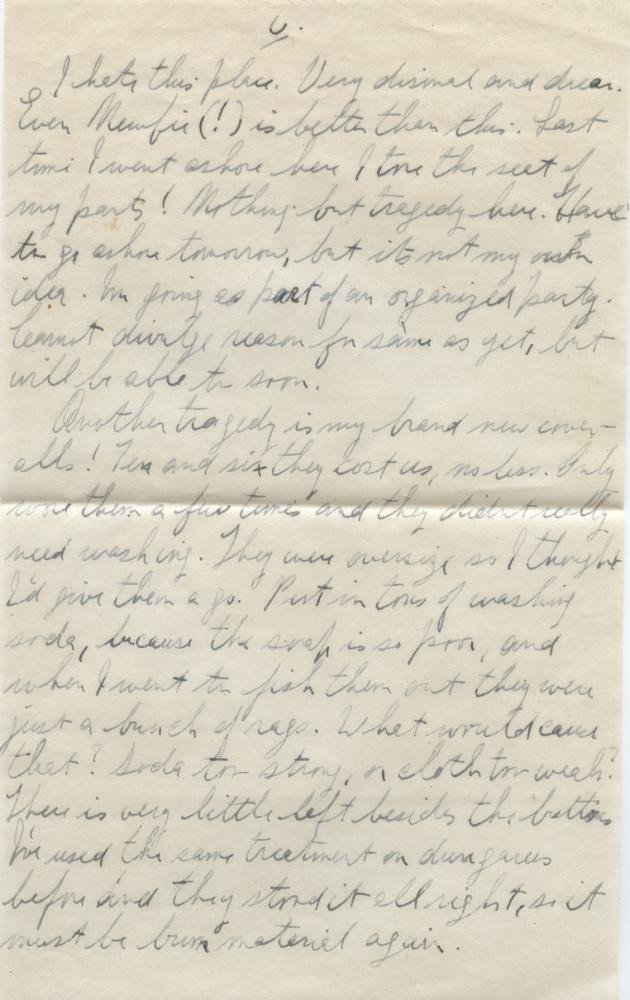 6.
I hate this place. Very dismal and drear.
Even Newfie (!) is better than this. Last
time I went ashore here I tore the seat of
my pants! Nothing but tragedy here. Have
to go ashore tomorrow, but its not my own
idea. Im going as part of an organized party.
Cannot divulge reason for same as yet, but
will be able to soon.
Another tragedy is my brand new cover-
alls! Ten and six they cost us, no less. Only
wore them a few times and they didnt really
need washing. They were oversize so I thought
I'd give them a go. Put in tons of washing
soda, because the soap is so poor, and
when I went to fish them out they were
just a bunch of rags. What would cause
that? Soda too strong, or cloth too weak?
There is very little left besides the buttons
I've used the same treatment on dungarees
before and they stood it all right, so it
must be bum material again.